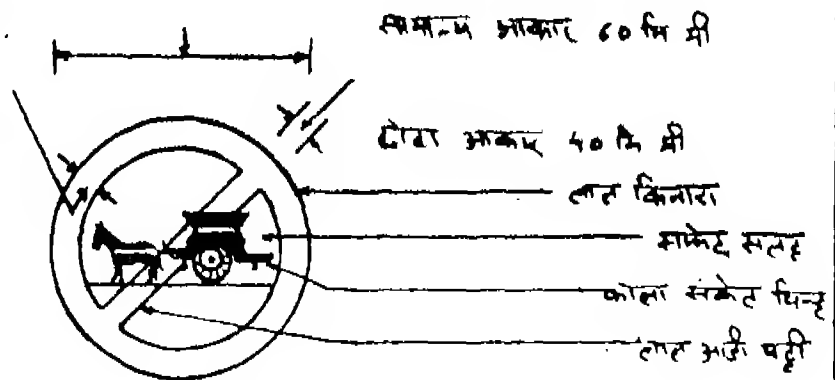 सामान्य आकार 60 मि मी
छोटा आकार 40 मि मी
लाल किनारा
सफेद सतह
काला संकेत चिन्ह
लाल आडी पट्टी